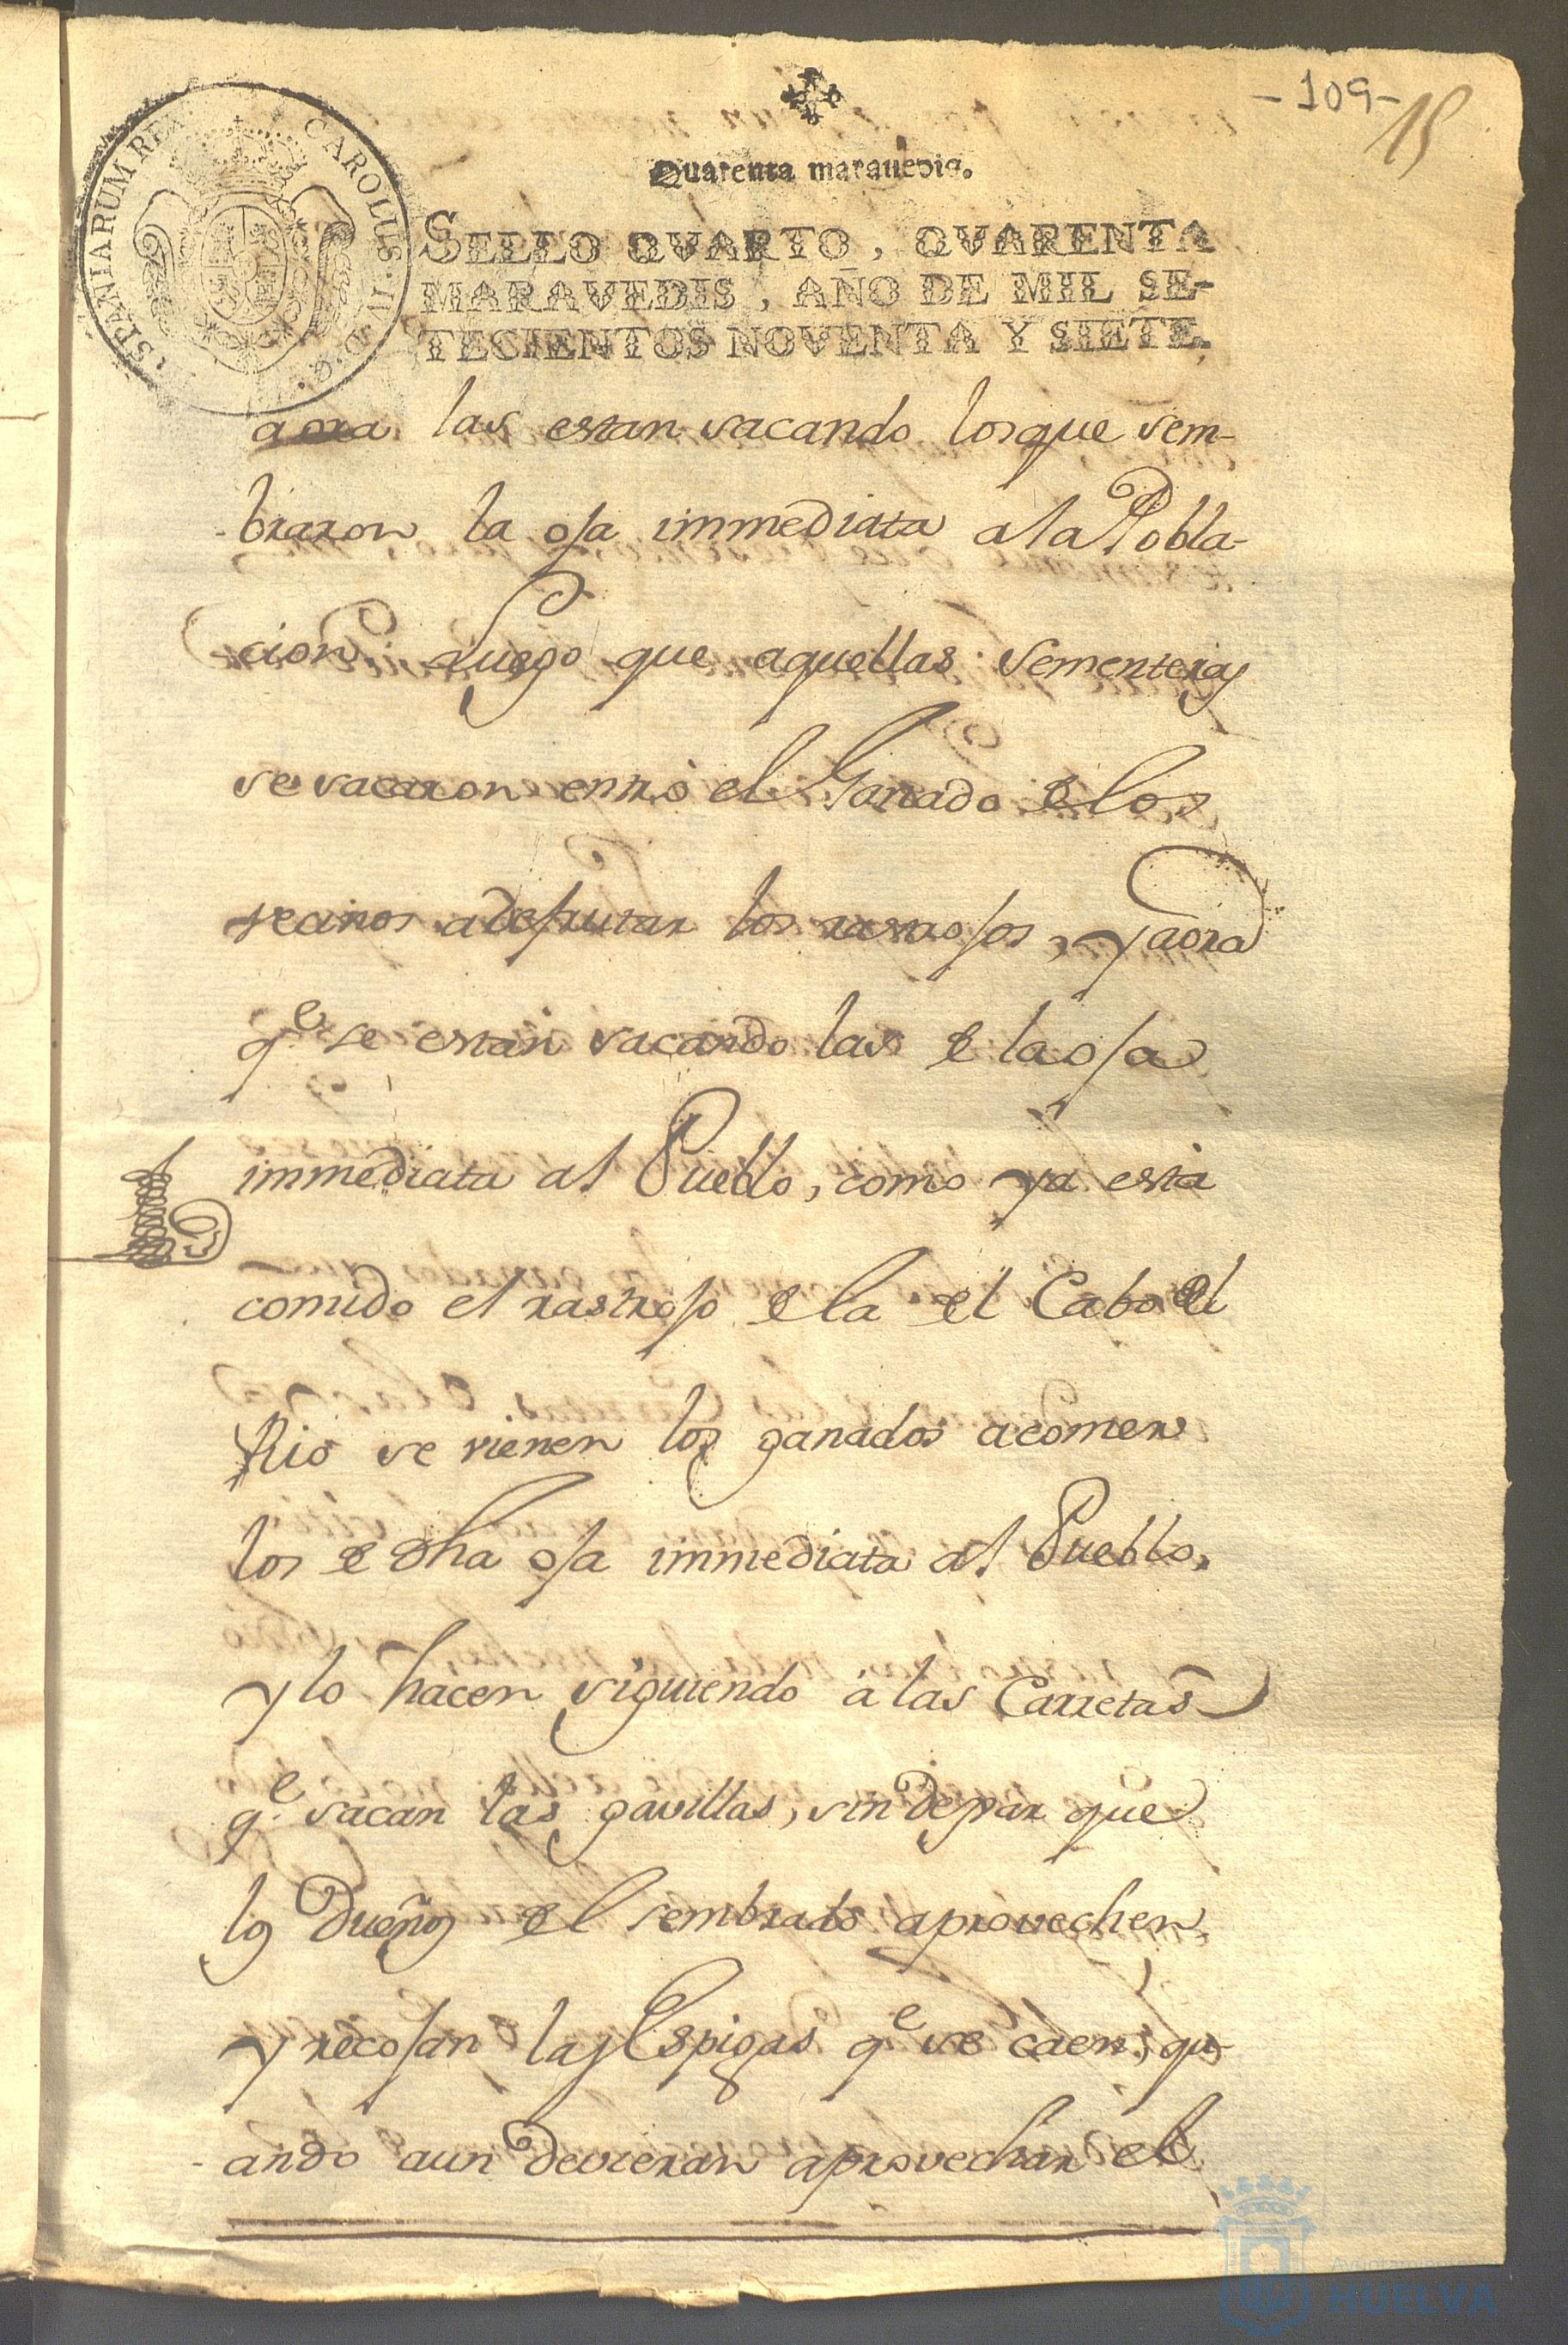 -109-
15
CAROLUS · IV · D · G · HISPANIARUM REX
Quarenta maravedis.
SELLO QVARTO, QVARENTA
MARAVEDIS, AÑO DE MIL SE-
TECIENTOS NOVENTA Y SIETE.
aora las estan sacando los que sem-
braron la oja immediata a la Pobla-
cion. Luego que aquellas sementeras
se sacaron entrò el Ganado de los
vecinos a desfrutar los rastrojos, y aora
qe. se estan sacando las de la oja
immediata al Pueblo, como ya està
comido el rastrojo de la del Cabo del
Rio se vienen los ganados a comer
los de dha oja immediata al Pueblo,
y lo hacen siguiendo à las Carretas
qe. sacan las gavillas, sin dejar que
los Dueños del sembrado aprovechen
y recojan las Espigas qe se caen, qu-
ando aun devieran aprovechar el
Ayuntamiento
HUELVA